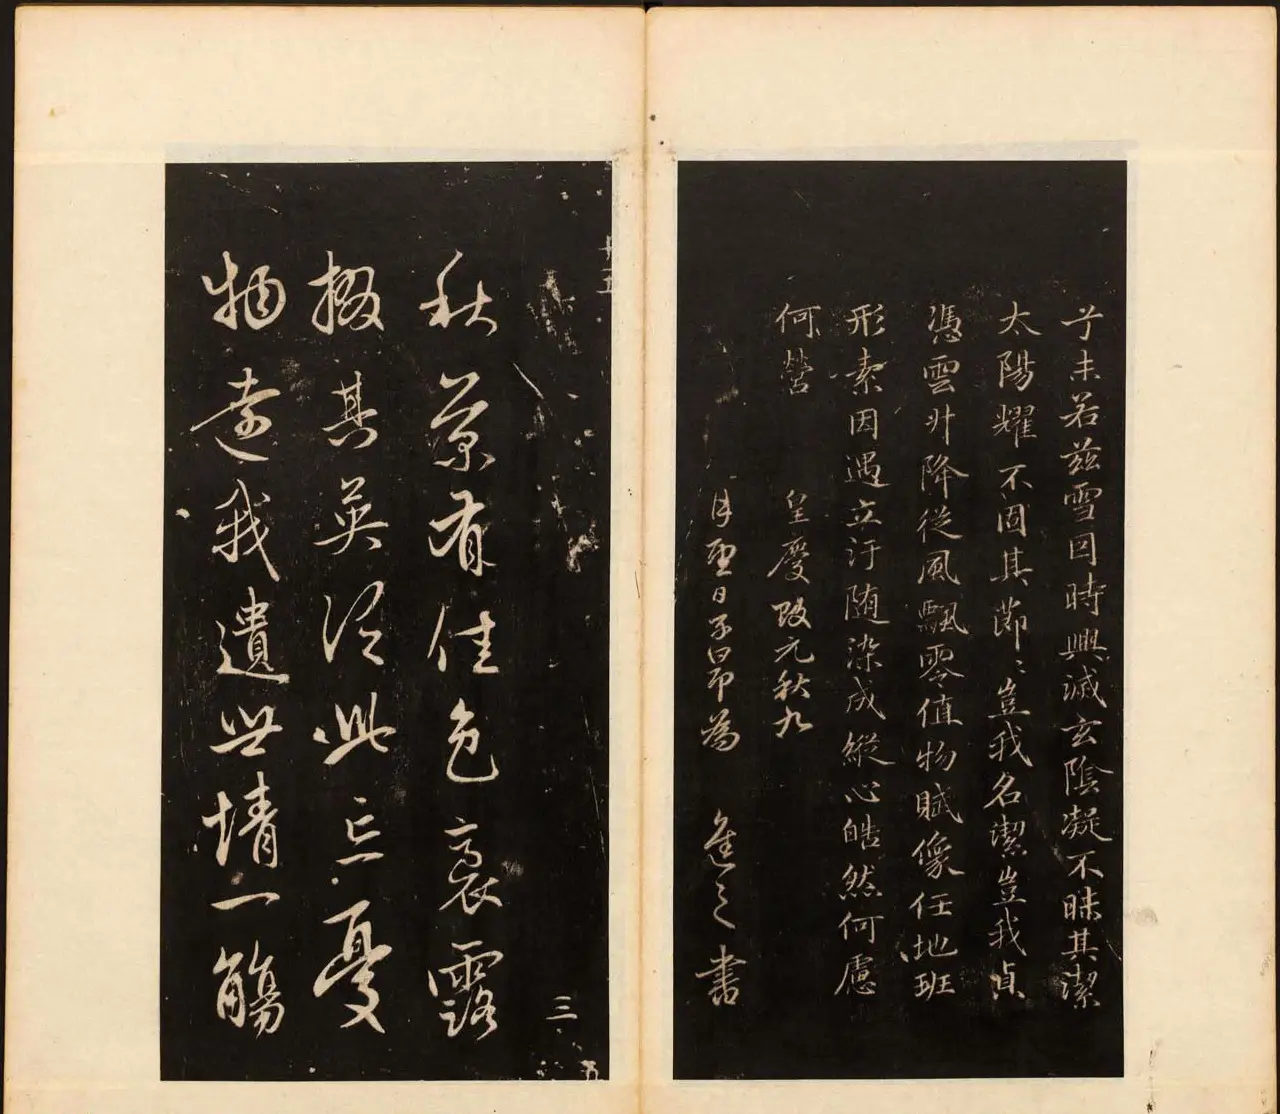 兮未若茲雪因時興滅玄陰凝不昧其潔
太陽耀不固其節〻豈我名潔豈我貞
憑雲升降從風飄零值物賦像任地班
形素因遇立汙隨染成縱心皓然何慮
何營 皇慶改元秋九
月望日子昂為 進之書
三
秋菊有佳色裛露
掇其英泛此忘憂
物遠我遺世情一觴